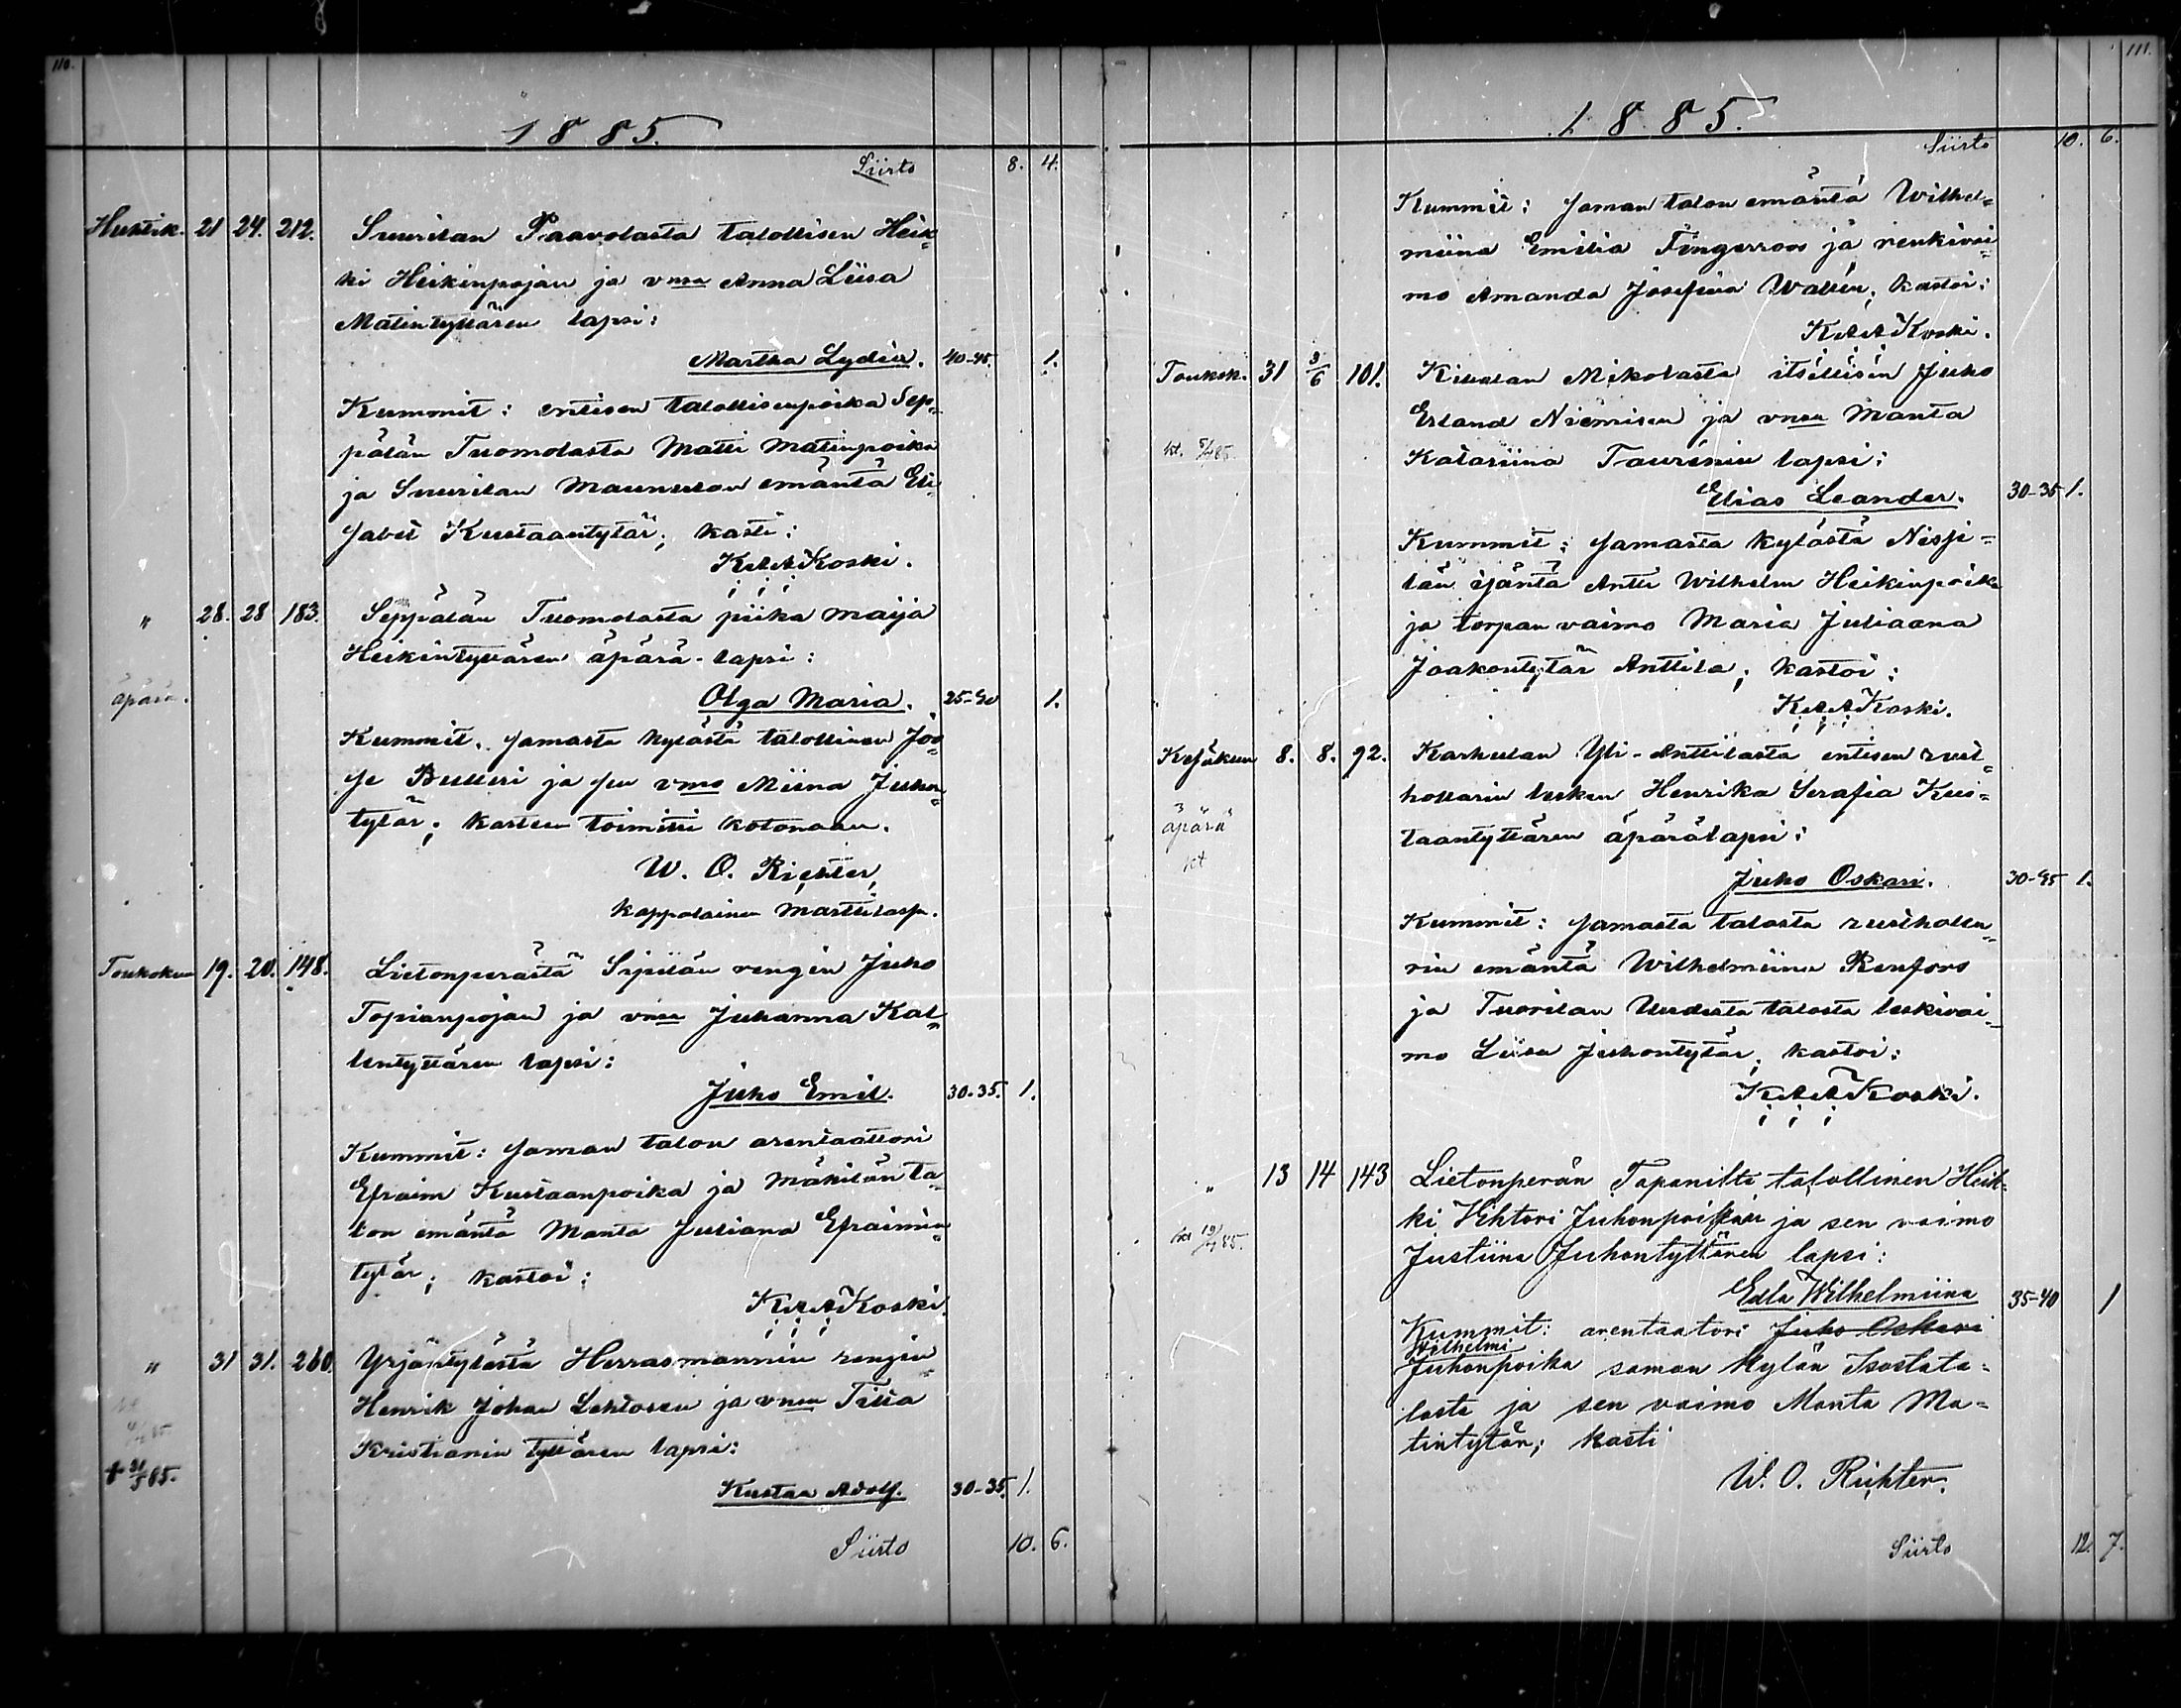 110.
1885.
Siirto 8. 4.
Huhtik. 21 24. 212. Suurilan Paavolasta talollisen Heik-
ki Heikinpojan ja vmsa Anna Liisa
Matintyttären lapsi:
Martha Lydia. 40-45. 1.
Kummit: entisen talollisenpoika Sep-
pälän Tuomolasta Matti Matinpoika
ja Suurilan Maunulan emäntä Eli-
sabet Kustaantytär; kasti:
K A A Koski.
" 28. 28 183. Seppälän Tuomolasta piika Maija
Heikintyttären äpärä-lapsi:
äpärä. Olga Maria. 25-30 1.
Kummit. samasta kylästä talollinen Joo-
se Bulleri ja sen vmo Miina Juhon-
tytär; kasteen toimitti kotonaan.
W. O. Richter,
kappalainen Marttilassa.
Toukokuu 19. 20. 148. Lietonperästä Sipilän rengin Juho
Topianpojan ja vmsa Juhanna Kal-
lentyttären lapsi:
Juho Emil. 30-35. 1.
Kummit: saman talon arentaattori
Efraim Kustaanpoika ja Mäkilän ta-
lon emäntä Manta Juliana Efraimin-
tytär; kastoi:
K A A Koski.
" 31 31. 260. Yrjänkylästä Herrasmannin rengin
Henrik Johan Lehtosen ja vmsa Tilta
Kristianin tyttären lapsi:
† 31/5 85.
Kustaa Adolf. 30-35. 1.
Siirto 10. 6.
111.
1885.
Siirto 10. 6.
Kummit: saman talon emäntä Wilhel-
miina Emilia Fingerroos ja renkivai-
mo Amanda Josefina Wallin; kastoi:
K A A Koski.
Toukok. 31 3/6 101. Kilialan Mikolasta itsellisen Juho
Erland Niemisen ja vmsa Manta
Katariina Taurénin lapsi:
Elias Leander. 30-35 1.
Kummit: samasta kylästä
isäntä Antti Wilhelm Heikinpoika
ja torpan vaimo Maria Juliaana
Jaakontytär Anttila; kastoi:
K A A Koski.
Kesäkuu 8. 8. 92. Karhulan Yli-Anttilasta entisen rust-
hollarin lesken Henrika Serafia Kus-
taantyttären äpärälapsi:
äpärä
kt
Juho Oskari. 30-35 1.
Kummit: samasta talosta rustholla-
rin emäntä Wilhelmiina Renfors
ja Tuorilan Uudesta talosta leskivai-
mo Liisa Juhontytär; kastoi:
K A A Koski.
" 13 14 143 Lietonperän Tapanilta talollinen Heik-
ki Vihtori Juhonpoijan ja sen vaimo
Justiina Juhontyttären lapsi:
Edla Wilhelmiina 35-40 1
Kummit: arentaatori Juho Oskari
Wilhelmi
Juhonpoika saman kylän Isosta ta-
losta ja sen vaimo Manta Ma-
tintytär; kasti
W. O. Richter.
Siirto 12. 7.